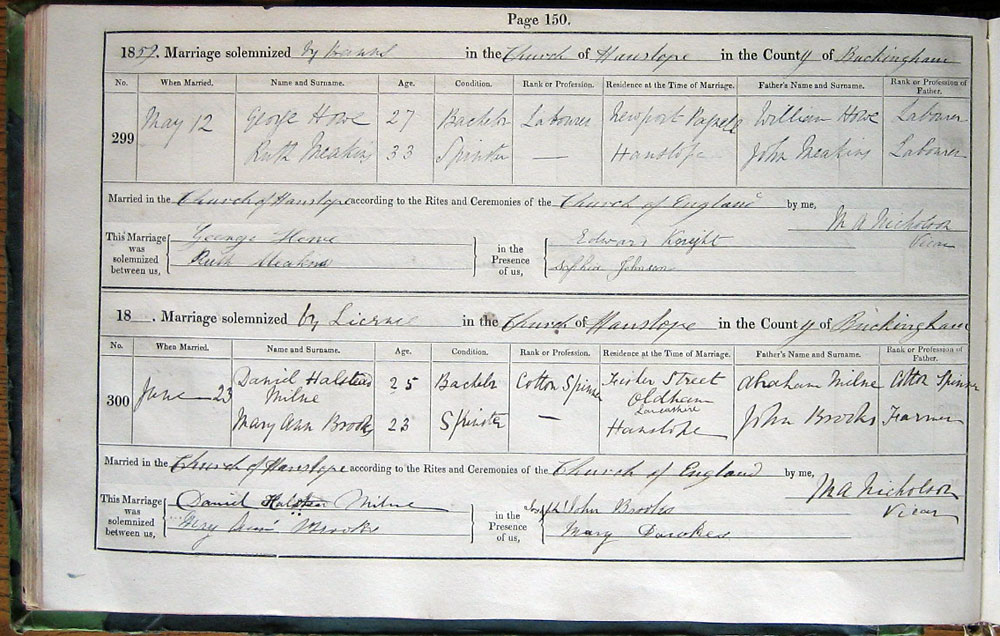 Page 150.
1857. Marriage solemnized by Banns in the Church of Hanslope in the County of Buckingham
No. When Married. Name and Surname. Age. Condition. Rank or Profession. Residence at the Time of Marriage. Father's Name and Surname. Rank or Profession of Father.
299 May 12 George Howe 27 Bachelr Labourer Newport Pagnell William Howe Labourer
Ruth Meakins 33 Spinster — Hanslope John Meakins Labourer
Married in the Church of Hanslope according to the Rites and Ceremonies of the Church of England by me,
M A Nicholson
Vicar
This Marriage was solemnized between us, George Howe in the Presence of us, Edward Knight
Ruth Meakins Sophia Johnson
18 . Marriage solemnized by Licence in the Church of Hanslope in the County of Buckingham
No. When Married. Name and Surname. Age. Condition. Rank or Profession. Residence at the Time of Marriage. Father's Name and Surname. Rank or Profession of Father.
300 June 23 Daniel Halstead Milne 25 Bachelr Cotton Spinner Fisher Street Oldham Lancashire Abraham Milne Cotton Spinner
Mary Ann Brooks 23 Spinster — Hanslope John Brooks Farmer
Married in the Church of Hanslope according to the Rites and Ceremonies of the Church of England by me,
M A Nicholson
Vicar
This Marriage was solemnized between us, Daniel Halstead Milne in the Presence of us, John Brooks
Mary Ann Brooks Mary